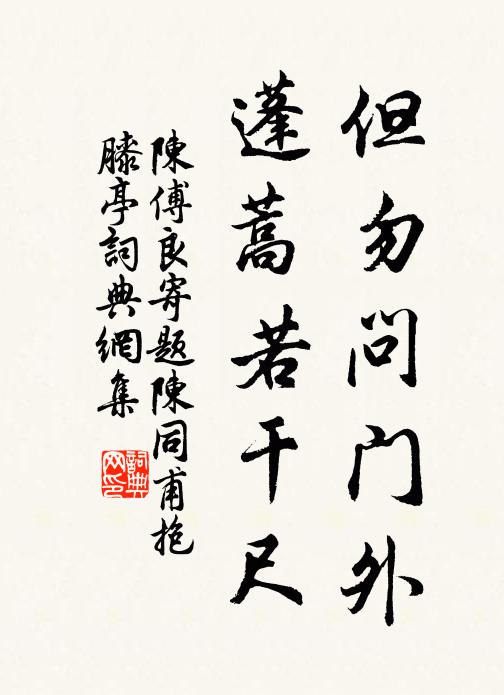 但勿問門外
蓬蒿若干尺
陳傅良寄題陳同甫抱
膝亭詞典網集
詞典
网印